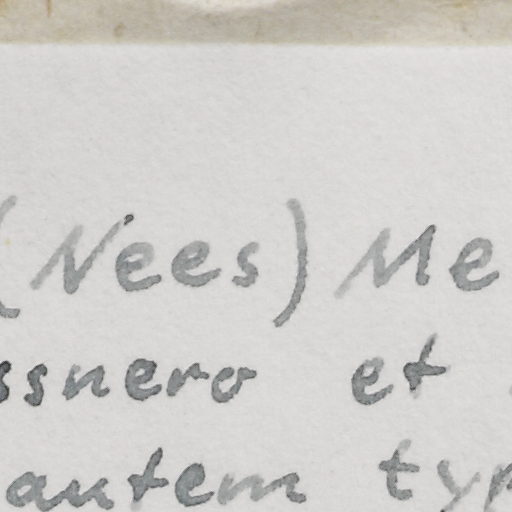 (Nees) Me
ssnero et
autem typ